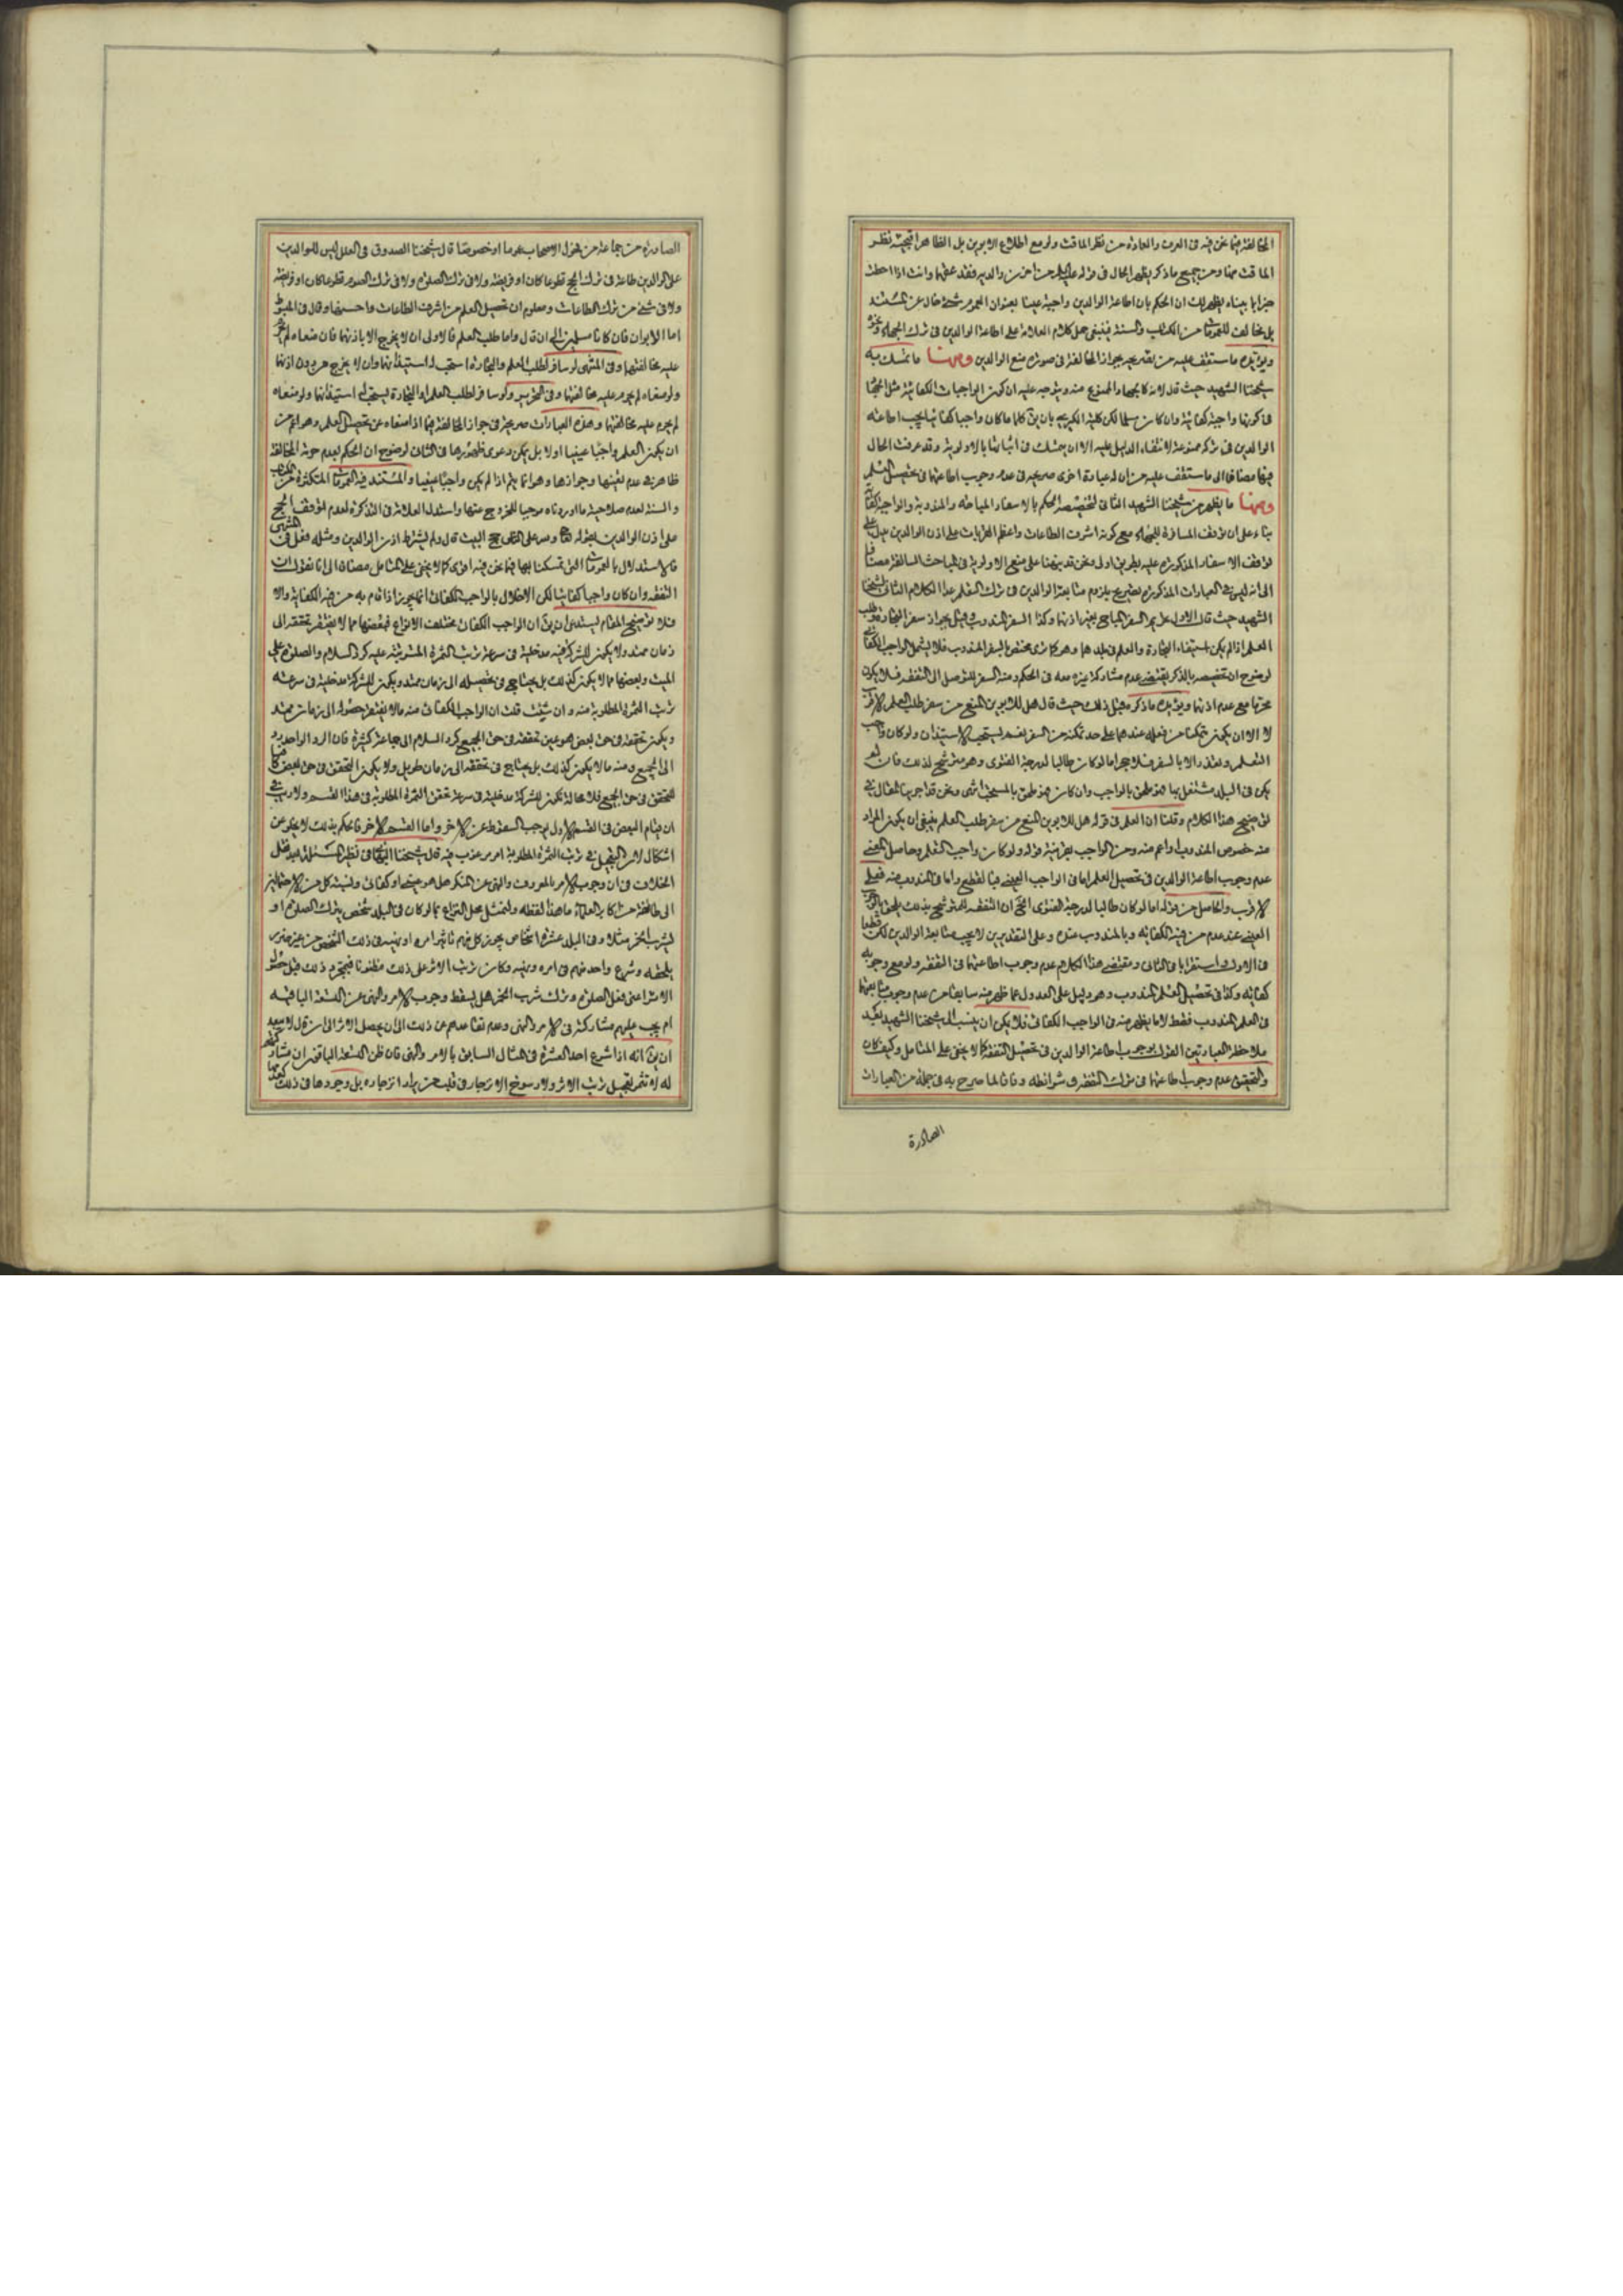 المخالفة فيما نحن فيه في العرف والعادة من نظر الماقت ولو مع اطلاع الابوين بل الظاهر قبيحة نظر
الماقت هنا ومن جميع ما ذكر يظهر الحال في قوله عليه السلام من احزن والديه فقد عقهما وانت اذا احطت
خبرا بما بيناه يظهر لك ان الحكم بان اطاعة الوالدين واجبة علينا بعنوان العموم شيء خال عن المستند
بل مخالف للعمومات من الكتاب والسنة فينبغي حمل كلام العلامة على اطاعة الوالدين في ترك الجهاد ونحوه
ويؤيده ما ستقف عليه من تصريحه بجواز المخالفة في صورة منع الوالدين ومنها ما تمسك به
شيخنا الشهيد حيث قال لانه كالجهاد الممنوع منه ويتوجه عليه ان كون الواجبات الكفائية مثل الجهاد
في كونها واجبة كفائية وان كان مسلما لكن كلية الكبرى بان يق كلما كان واجبا كفائيا يجب اطاعة
الوالدين في تركه ممنوعة لانتفاء الدليل عليه الا ان يتمسك في اثباتها بالاولوية وقد عرفت الحال
فيها مضافا الى ما ستقف عليه من ان له عبارة اخرى صريحة في عدم وجوب اطاعتهما في تحصيل العلم
ومنها ما يظهر من شيخنا الشهيد الثاني لتخصيصه الحكم بالاسفار المباحة والمندوبة والواجبة كفائيا
بناء على ان توقف المسافرة للجهاد مع كونه اشرف الطاعات واعظم القربات على اذن الوالدين يدل على
توقف الاسفار المذكورة عليه بطريق اولى ونحن قد نبهنا على منع الاولوية في المباحث السالفة مضافا
الى انه ليس في العبارات المذكورة تصريح بلزوم متابعة الوالدين في ترك التعلم عدا الكلام الثاني لشيخنا
الشهيد حيث قال الاول تحريم السفر المباح بغير اذنهما وكذا السفر المندوب وقيل بجواز سفر التجارة وطلب
العلم اذا لم يكن استيفاء التجارة والعلم في بلدهما وهو كما ترى مختص بالسفر المندوب فلا يشمل الواجب الكفائي
لوضوح ان تخصيصه بالذكر يقتضي عدم مشاركة غيره معه في الحكم ومنه السفر للتوصل الى التفقه فلا يكون
محرما مع عدم اذنهما ويؤيده ما ذكره قبيل ذلك حيث قال هل للابوين المنع من سفر طلب العلم الاقرب
لا الا ان يكون متمكنا من فعله عندهما على حد تمكنه من السفر نعم يستحب الاستيذان ولو كان واجب
التعلم وتعذر الا بالسفر فلا حجر اما لو كان طالبا لدرجة الفتوى وهو مترشح لذلك فان لم
يكن في البلد مشتغل بها فهو ملحق بالواجب وان كان فهو ملحق بالمستحب انتهى ونحن قد اجرينا المقال في
توضيح هذا الكلام وقلنا ان العلم في قوله هل للابوين المنع من سفر طلب العلم ينبغي ان يكون المراد
منه خصوص المندوب او اعم منه ومن الواجب بقرينة قوله ولو كان واجب التعلم وحاصل المعنى
عدم وجوب اطاعة الوالدين في تحصيل العلم اما في الواجب العيني فبالقطع واما في المندوب منه فعلى
الاقرب والحاصل من قوله اما لو كان طالبا لدرجة الفتوى الخ ان التفقه للمترشح بذلك يلحق بالواجب
العيني عند عدم من فيه الكفاية وبالمندوب عنده وعلى التقديرين لا يجب متابعة الوالدين لكن قطعا
في الاول واستقرابا في الثاني ومقتضى هذا الكلام عدم وجوب اطاعتهما في التفقه ولو مع وجوبه
كفاية وكذا في تحصيل العلم المندوب وهو دليل على العدول عما ظهر منه سابقا من عدم وجوب متابعتهما
في العلم المندوب فقط لا ما يظهر منه في الواجب الكفائي فلا يمكن ان ينسب الى شيخنا الشهيد بعد
ملاحظة العبارتين القول بوجوب اطاعة الوالدين في تحصيل التفقه كما لا يخفى على المتامل وكيف كان
والتحقيق عدم وجوب اطاعتهما في ترك التفقه في شرائطه وفاقا لما صرح به في جملة من العبارات
الصادرة
الصادرة من جماعة من فحول الاصحاب عموما او خصوصا قال شيخنا الصدوق في العلل ليس للوالدين
على الوالدين طاعة في ترك الحج تطوعا كان او فريضة ولا في ترك الصلوة ولا في ترك الصوم تطوعا كان او فريضة
ولا في شيء من ترك الطاعات ومعلوم ان تحصيل العلم من اشرف الطاعات واحسنها وقال في المبسوط
اما الابوان فان كانا مسلمين الى ان قال واما طلب العلم فالاولى ان لا يخرج الا باذنهما فان منعاه لم يحرم
عليه مخالفتهما وفي المنتهى لو سافر لطلب العلم والتجارة استحب له استيذانهما وان لا يخرج من دون اذنهما
ولو منعاه لم يحرم عليه مخالفتهما وفي التحرير ولو سافر لطلب العلم او التجارة يستحب له استيذانهما ولو منعاه
لم يحرم عليه مخالفتهما وهذه العبارات صريحة في جواز المخالفة فيما اذا منعاه عن تحصيل العلم وهو اعم من
ان يكون العلم واجبا عينيا اولا بل يمكن دعوى ظهورها في الثاني لوضوح ان الحكم بعدم حرمة المخالفة
ظاهر في عدم تعينها وجوازها وهو انما يتم اذا لم يكن واجبا عينيا والمستند فيه العمومات المتكثرة من الكتاب
والسنة لعدم صلاحية ما اوردناه موجبا للخروج عنها واستدل العلامة في التذكرة لعدم توقف الحج
على اذن الوالدين بقوله تعالى ولله على الناس حج البيت قال ولم يشترط اذن الوالدين ومثله فعل في المنتهى
فالاستدلال بالعمومات التي تمسكنا بها فيما نحن فيه اقوى كما لا يخفى على المتامل مضافا الى انا نقول ان
التفقه وان كان واجبا كفائيا لكن الاخلال بالواجب الكفائي انما يجوز اذا قام به من فيه الكفاية والا
فلا توضيح المقام يستدعي ان يق ان الواجب الكفائي مختلف الانواع فبعضها مما لا يفتقر تحققه الى
زمان ممتد ولا يكون للشركة فيه مدخلية في سرعة ترتب الثمرة المترتبة عليه كرد السلام والصلوة على
الميت وبعضها مما لا يكون كذلك بل يحتاج في تحصيله الى زمان ممتد ويكون للشركة مدخلية في سرعة
ترتب الثمرة المطلوبة منه وان شئت قلت ان الواجب الكفائي منه ما لا يفتقر حصوله الى زمان ممتد
ويكون تحققه في حق بعض هو عين تحققه في حق الجميع كرد السلام الى جماعة كثيرة فان الرد الواحد يرد
الى الجميع ومنه ما لا يكون كذلك بل يحتاج في تحققه الى زمان طويل ولا يكون التحقق في حق البعض كافيا
للتحقق في حق الجميع فلا محالة تكون للشركة مدخلية في سرعة تحقق الثمرة المطلوبة في هذا القسم ولا ريب في
ان قيام البعض في القسم الاول يوجب السقوط عن الاخر واما القسم الاخر فالحكم بذلك لا يخلو عن
اشكال لان التعجيل في ترتب الثمرة المطلوبة امر مرغوب فيه قال شيخنا البهائي في نظير المسئلة بعد نقل
الخلاف في ان وجوب الامر بالمعروف والنهي عن المنكر هل هو عيني او كفائي ونسبة كل من الاحتمالين
الى طائفة من اكابر العلماء ما هذا لفظه ولنمثل محل النزاع بما لو كان في البلد شخص يترك الصلوة او
يشرب الخمر مثلا وفي البلد عشرة اشخاص يجوز كل منهم تاثير امره او نهيه في ذلك الشخص من غير ضرر
يلحقه وشرع واحد منهم في امره ونهيه وكان ترتب الاثر على ذلك مظنونا فبمجرد ذلك قبل حصول
الاثر اعني فعل الصلوة وترك شرب الخمر هل يسقط وجوب الامر والنهي عن التسعة الباقية
ام يجب عليهم مشاركته في الامر والنهي وعدم تقاعدهم عن ذلك الى ان يحصل الاثر الى ان قال لا يبعد
ان يق انه اذا شرع احد العشرة في المثال السابق بالامر والنهي فان ظن التسعة الباقون ان مشاركتهم
له لا تثمر تعجيل ترتب الاثر ولا رسوخ الانزجار في قلب من يراد انزجاره بل وجودها في ذلك كعدمها